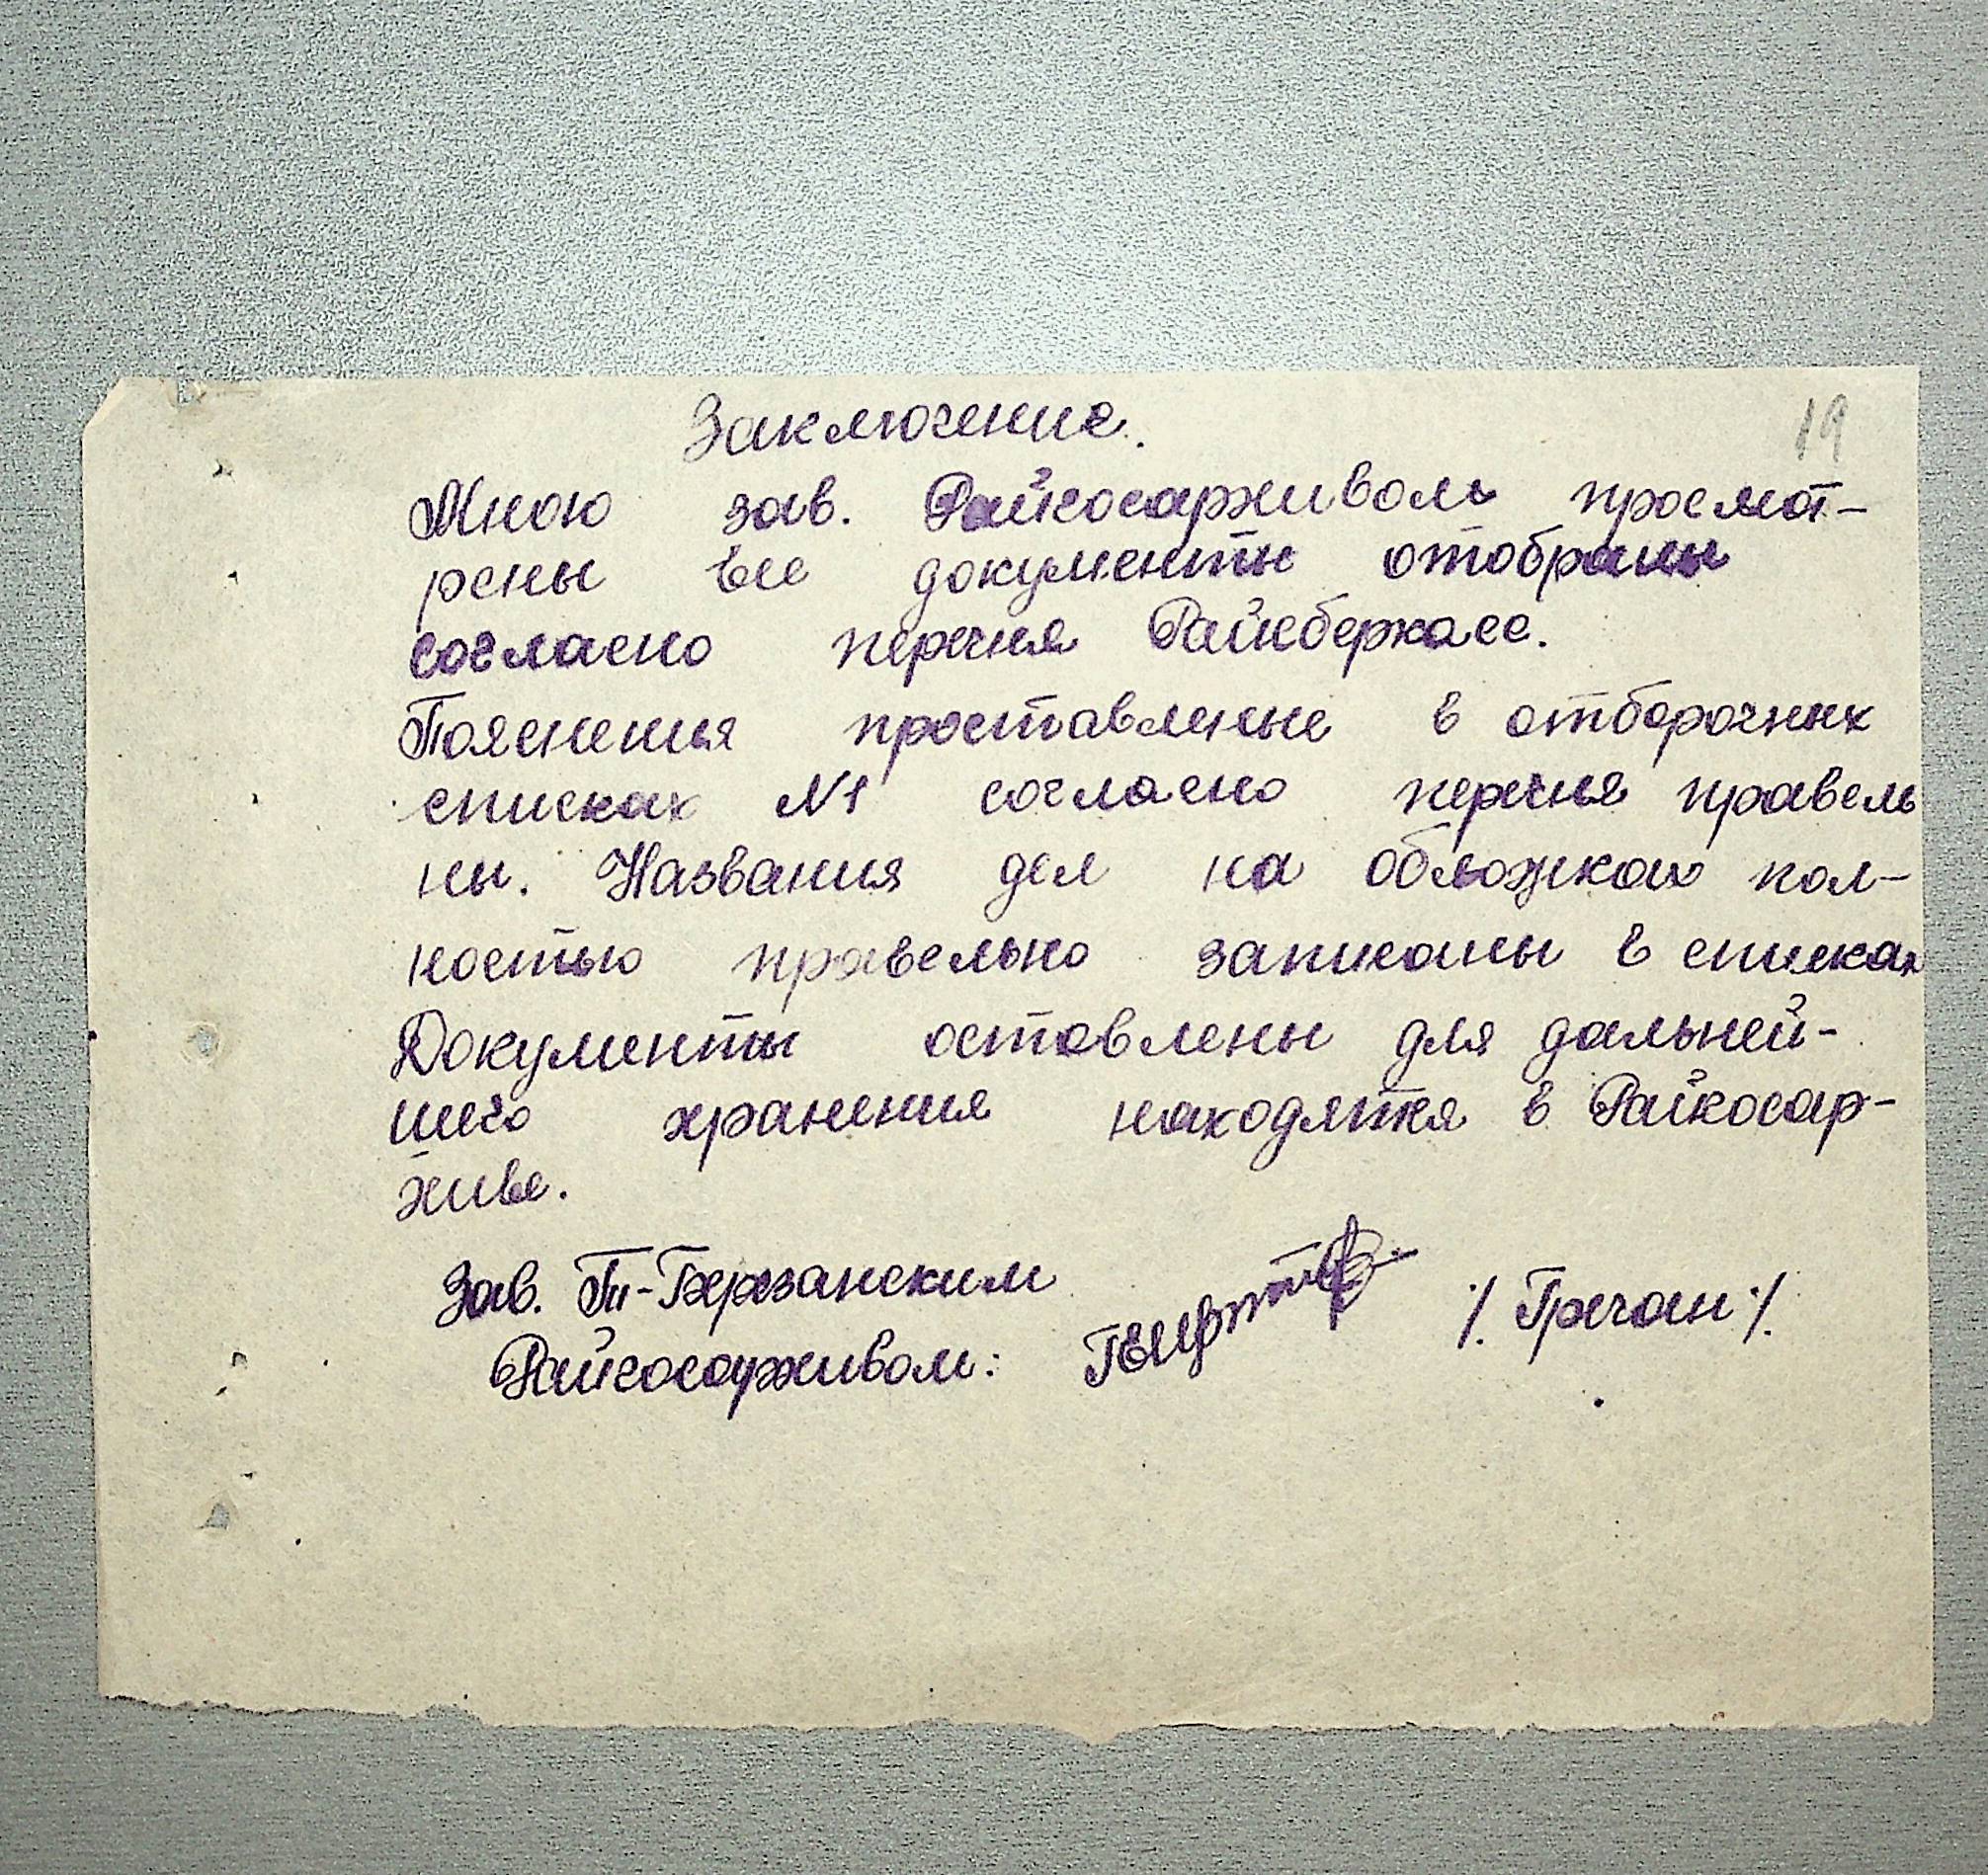 Заключение.
19
Мною зав. Райгосархивом просмот-
рены все документы отобраны
согласно перечня Райсберкасс.
Пояснения проставленые в отборочных
списках №1 согласно перечня правель
ны. Названия дел на обложках пол-
ностью правельно записаны в списках
Документы оставлены для дальней-
шего хранения находятся в Райгосар-
хиве.
Зав. Ти-Березанским
Райгосархивом: /. Гречан ./.